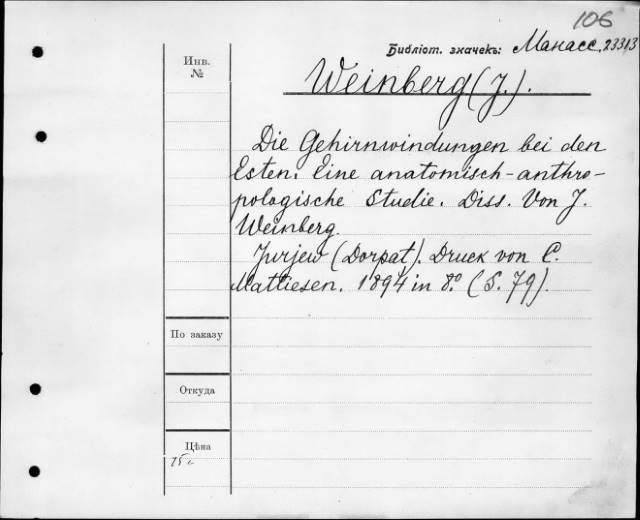 106
Библіот. значекъ: Манасс. 23313
Инв.
№
Weinberg (J.).
Die Gehirnwindungen bei den
Esten. Eine anatomisch-anthro-
pologische Studie. Diss. Von J.
Weinberg.
Jurjew (Dorpat). Druck von C.
Mattiesen. 1894 in 8º. (S. 79).
По заказу
Откуда
Цѣна
75